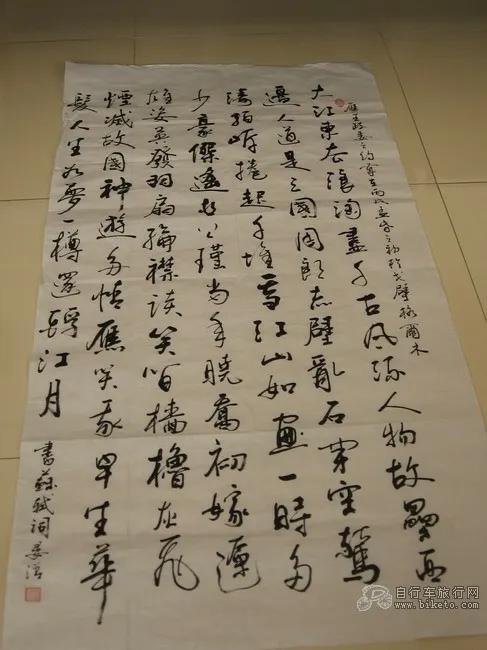 應王路委之約 丙戌孟春之初於戈壁格爾木
大江東去浪淘盡千古風流人物故壘西
邊人道是三國周郎赤壁亂石穿空驚
濤拍岸捲起千堆雪江山如畫一時多
少豪傑遙想公瑾當年曉喬初嫁
雄姿英發羽扇綸襟談笑間檣櫓灰飛
煙滅故國神遊多情應笑我早生華
髮人生如夢一樽還酹江月
書蘇軾詞
自行车旅行网
www.biketo.com